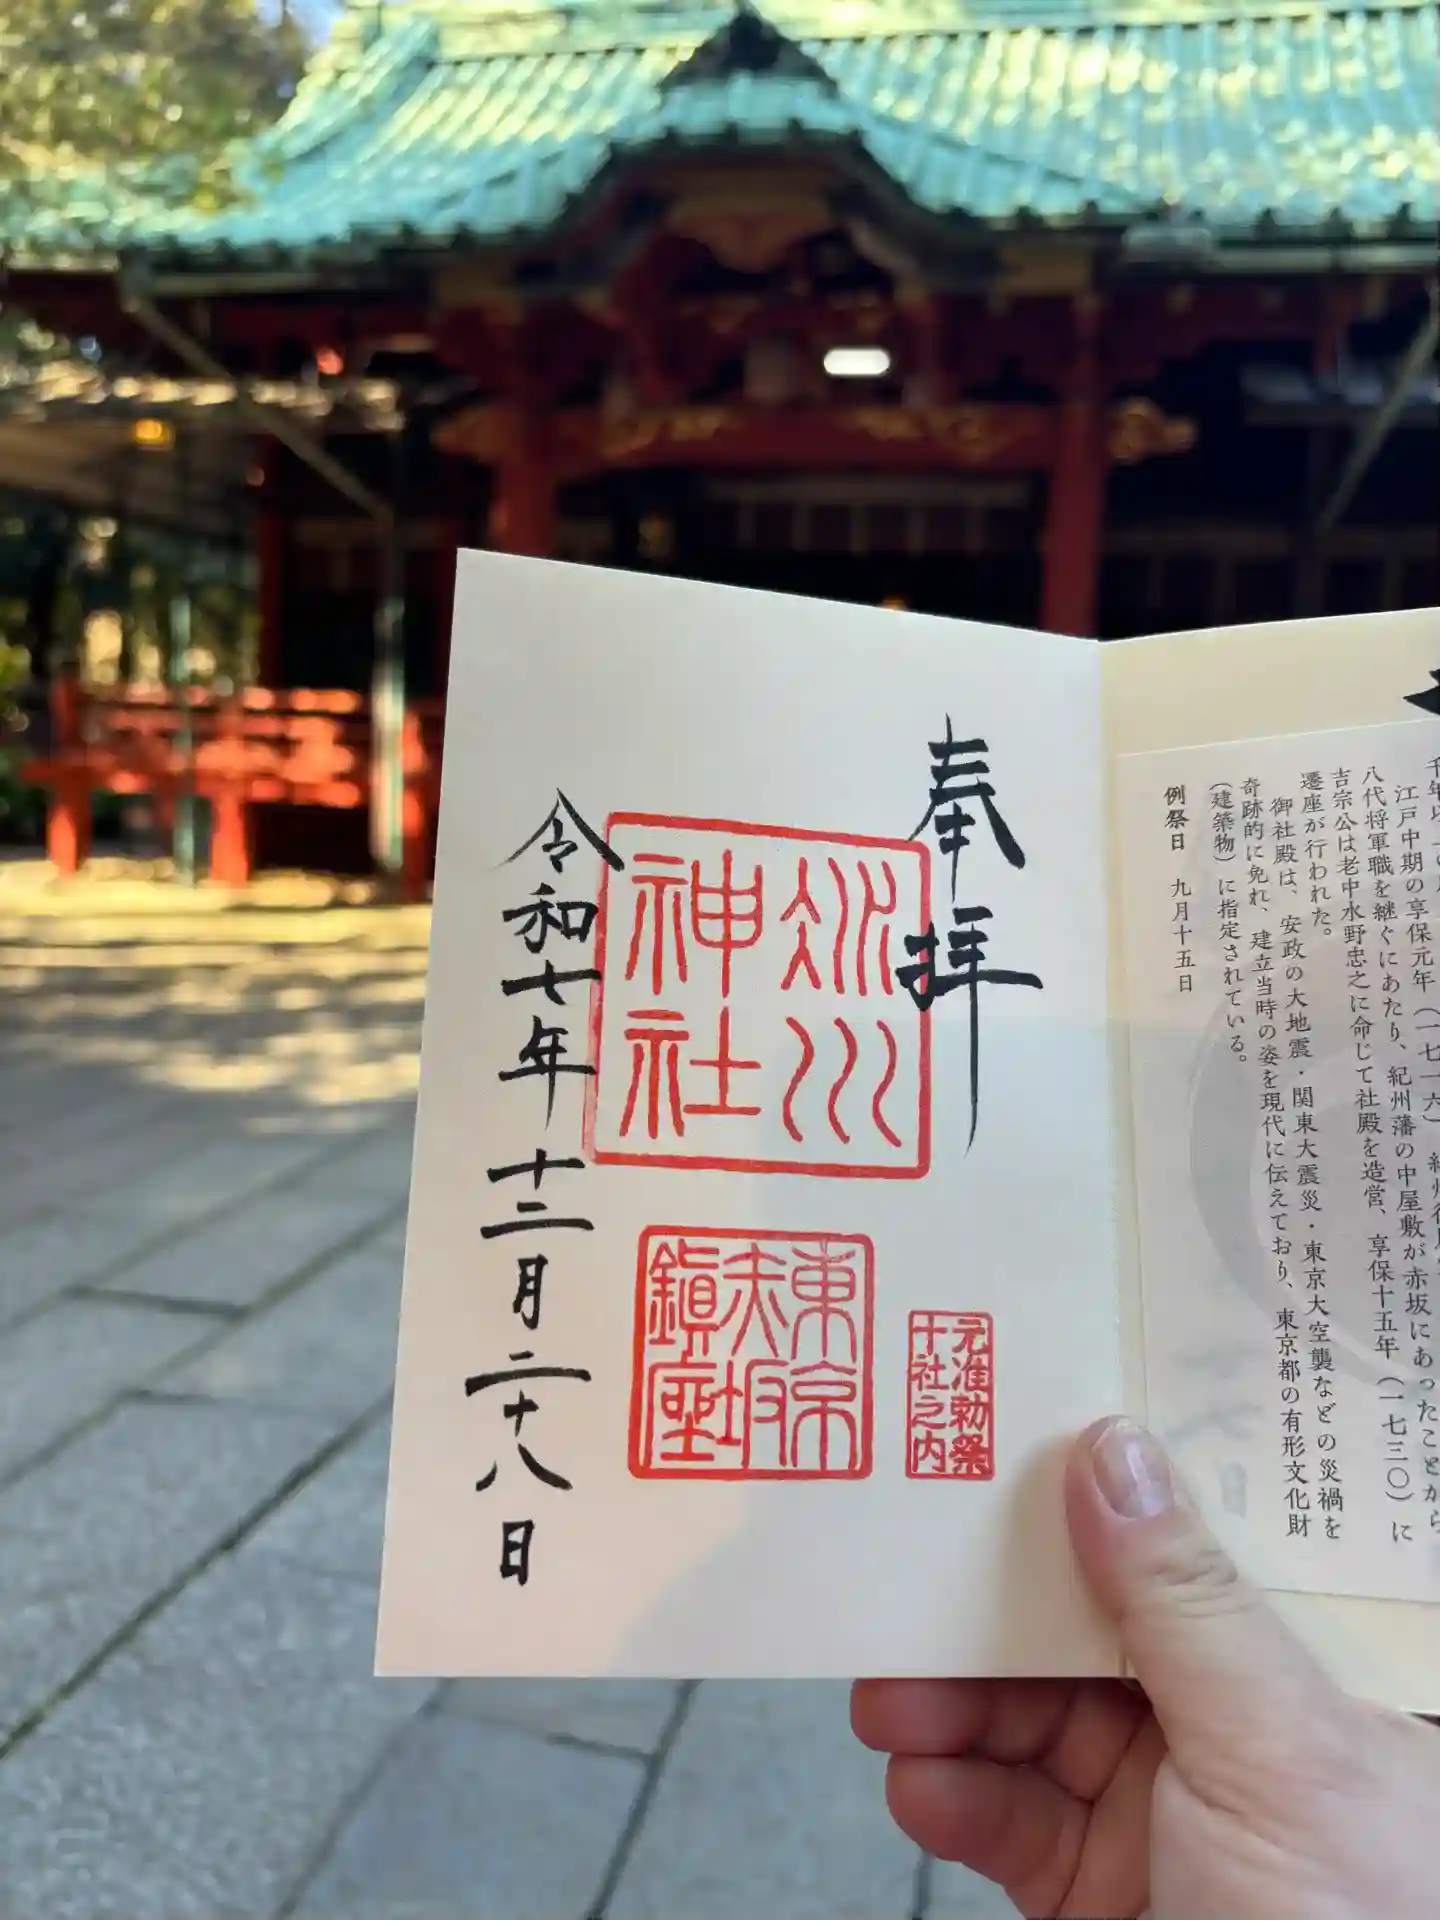 千年以上
江戸中期の享保元年(一七一六)
八代将軍職を継ぐにあたり、紀州藩の中屋敷が赤坂にあったことから
吉宗公は老中水野忠之に命じて社殿を造営、享保十五年(一七三〇)に
遷座が行われた。
御社殿は、安政の大地震・関東大震災・東京大空襲などの災禍を
奇跡的に免れ、建立当時の姿を現代に伝えており、東京都の有形文化財
(建築物)に指定されている。
例祭日 九月十五日
奉拝
氷川
神社
元准勅祭
十社之内
東京
赤坂
鎮座
令和七年十二月二十八日